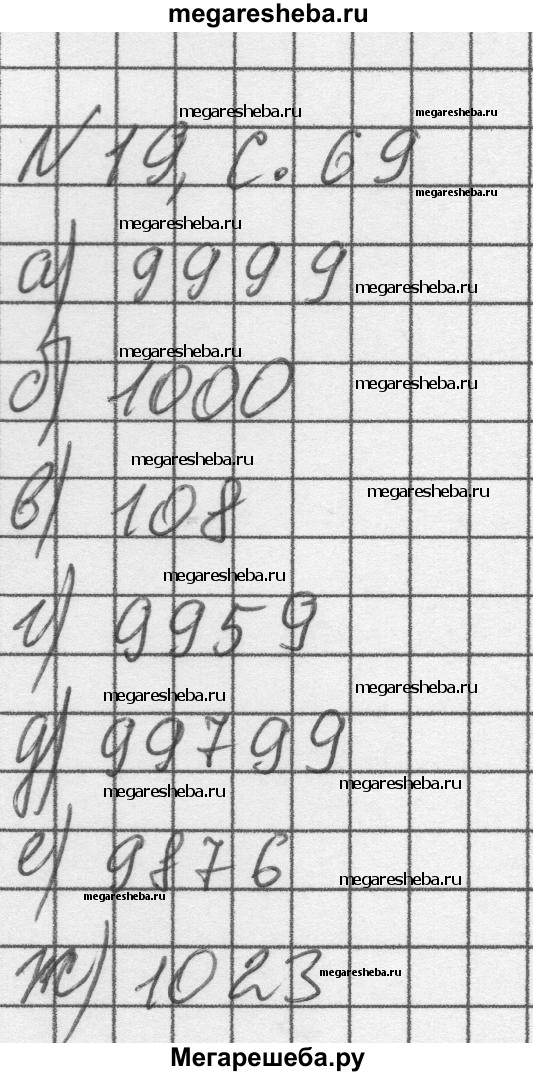 megaresheba.ru
megaresheba.ru megaresheba.ru
№ 19, с. 69
megaresheba.ru
megaresheba.ru
а) 9999
megaresheba.ru
megaresheba.ru
б) 1000
megaresheba.ru
megaresheba.ru
в) 108
megaresheba.ru
megaresheba.ru
г) 9959
megaresheba.ru
megaresheba.ru
д) 99799
megaresheba.ru
megaresheba.ru
е) 9876
megaresheba.ru
megaresheba.ru
ж) 1023
megaresheba.ru
Мегарешеба.ру